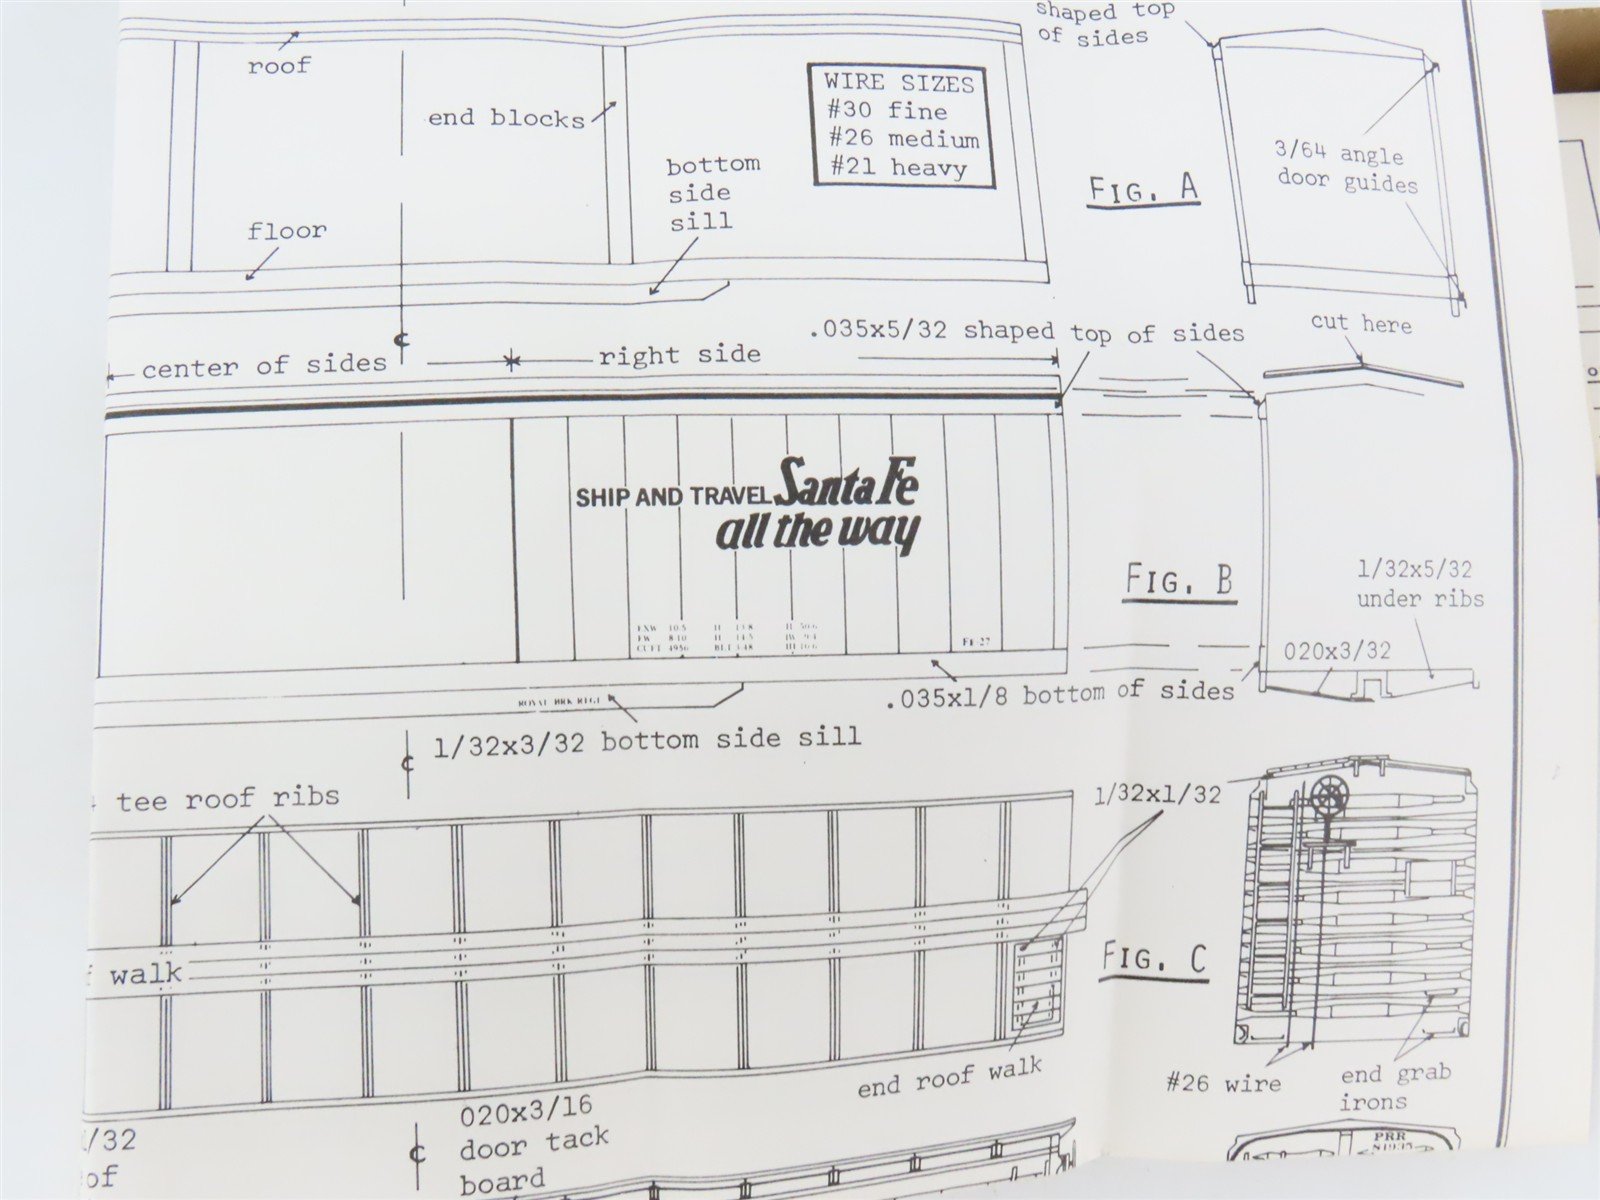 shaped top
of sides
roof
WIRE SIZES
#30 fine
#26 medium
#21 heavy
end blocks
3/64 angle
door guides
bottom
side
sill
FIG. A
floor
cut here
.035x5/32 shaped top of sides
center of sides
right side
SHIP AND TRAVEL Santa Fe
all the way
FIG. B
1/32x5/32
under ribs
020x3/32
.035x1/8 bottom of sides
1/32x3/32 bottom side sill
tee roof ribs
1/32x1/32
walk
FIG. C
end roof walk
#26 wire
end grab
irons
020x3/16
door tack
board
/32
of
PRR